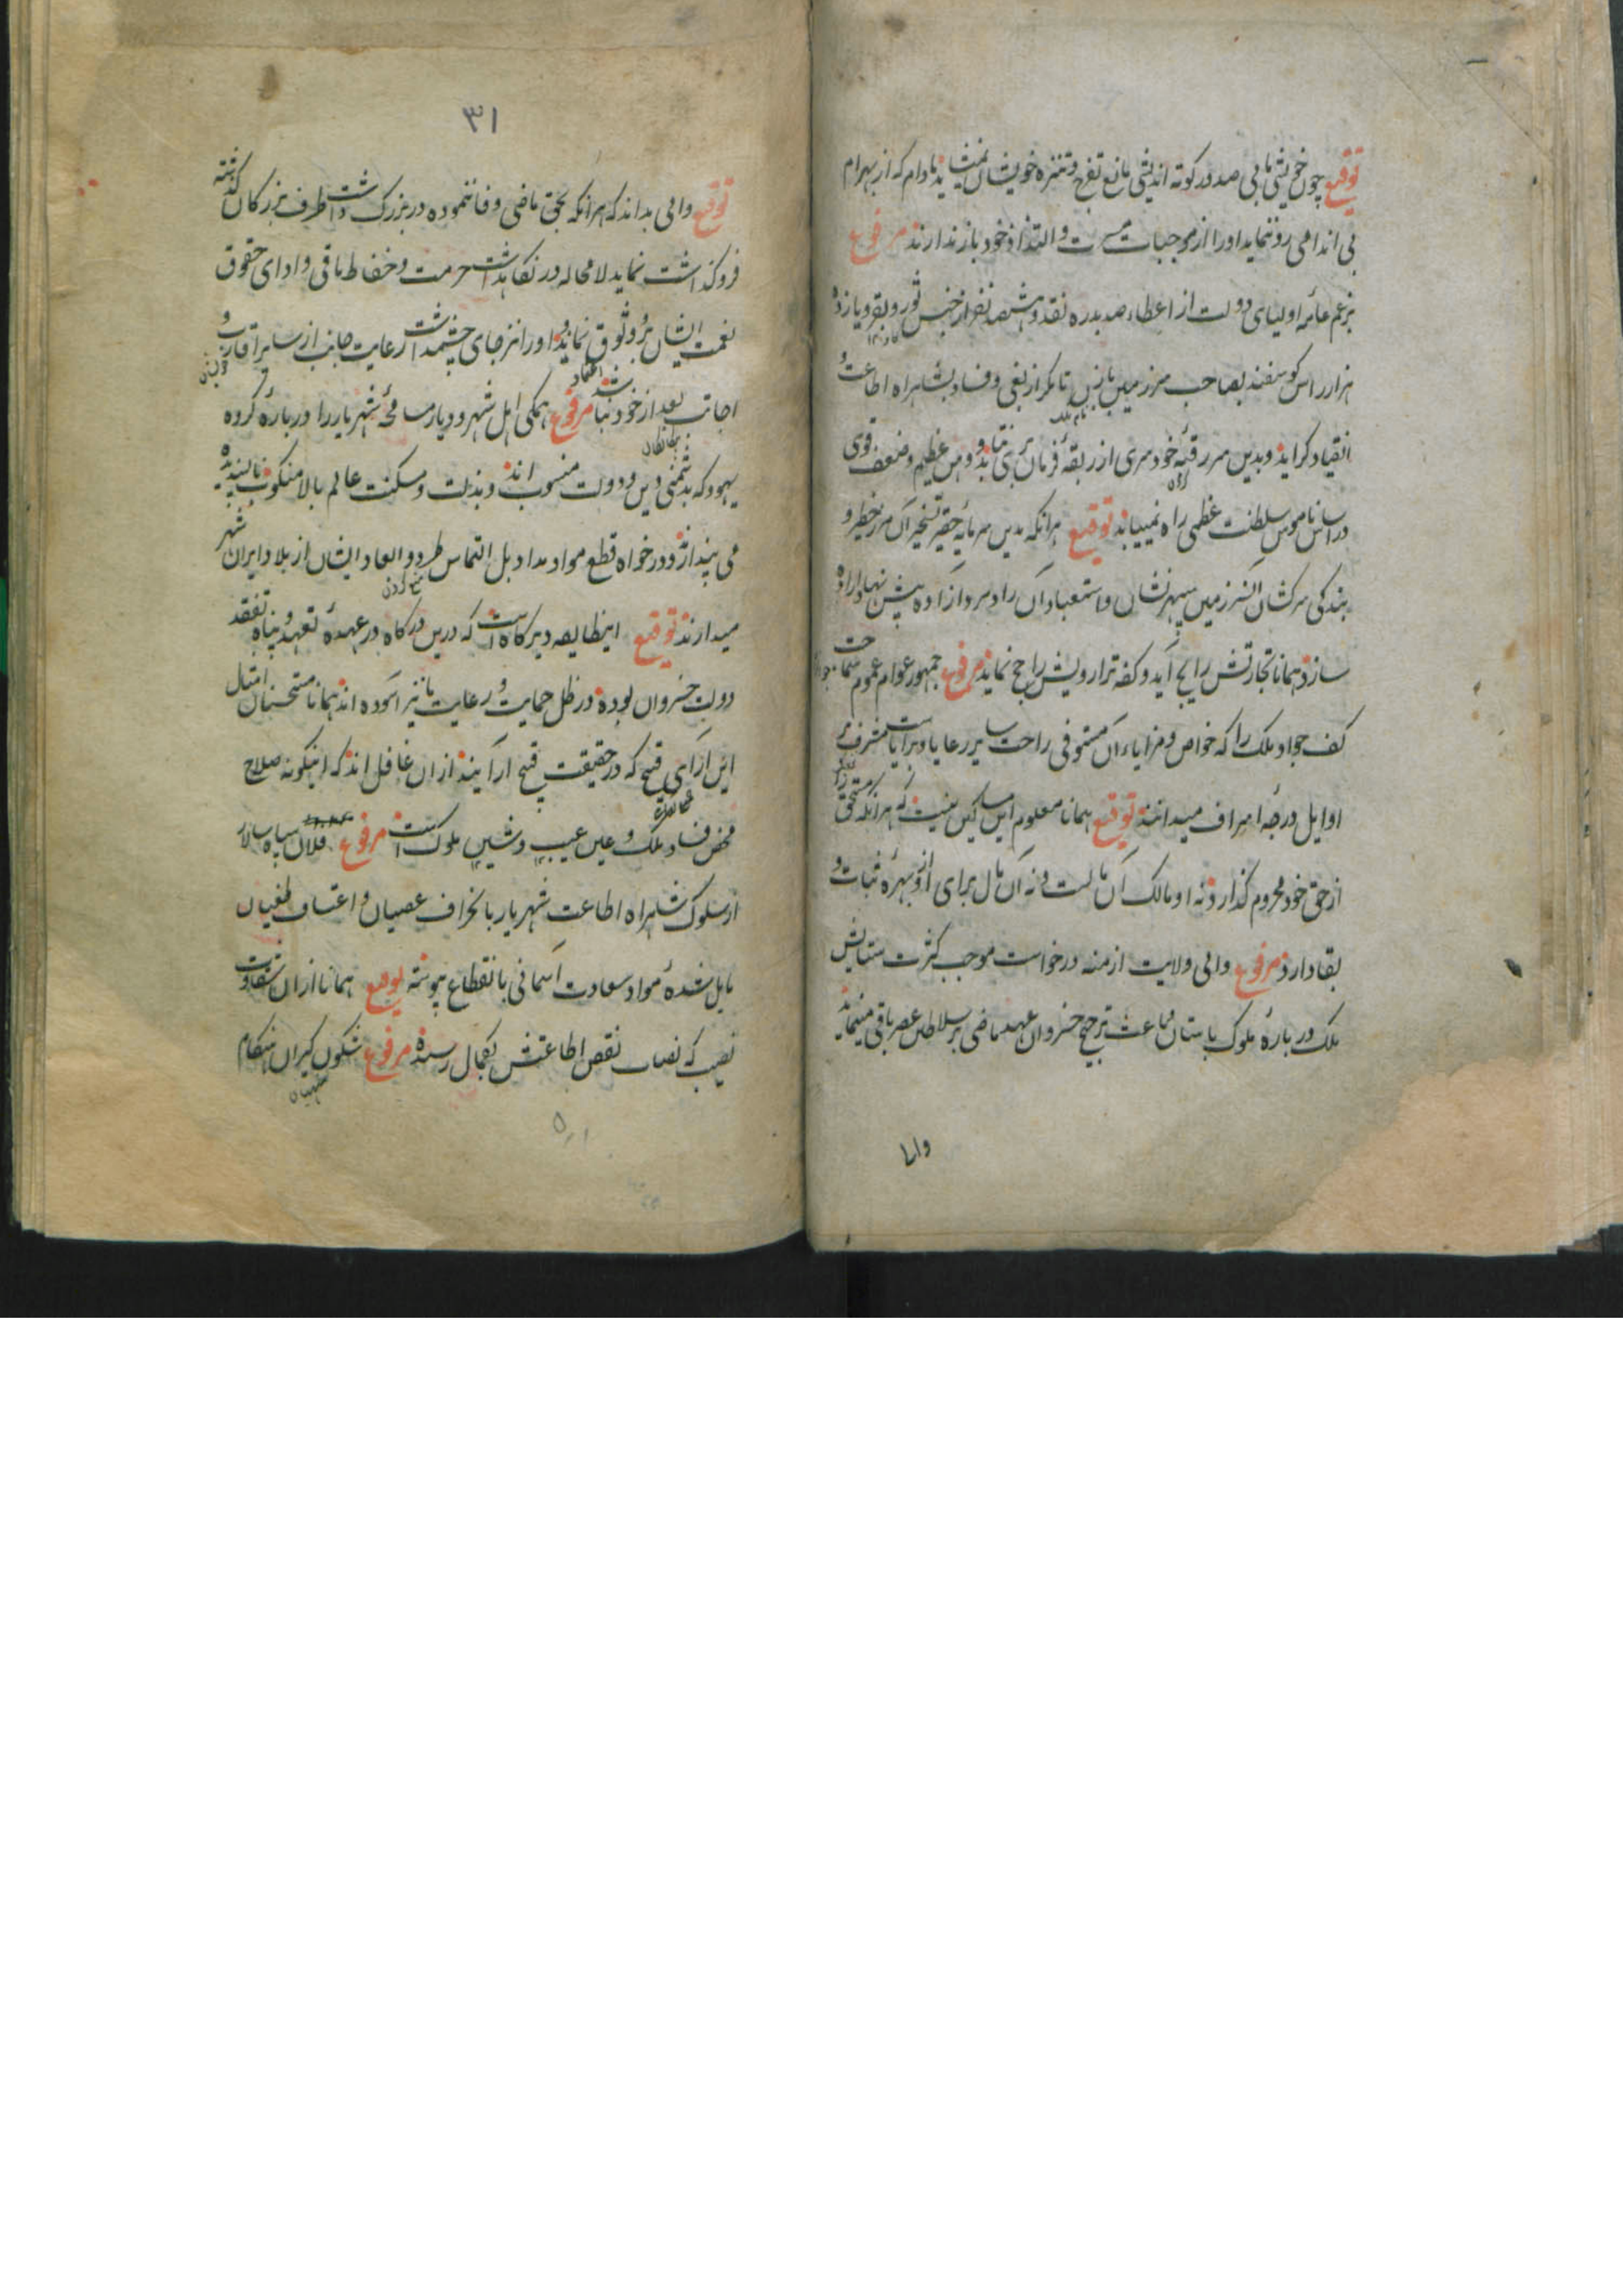 توقیع چون خویشتن یابی صدور کوته اندیشی مانع تفرج و تنزه خویشان نمیشاید مادام که از بهرام
بی اندامی رو ننماید او را از موجبات مسرت و التذاذ خود باز ندارند مرفوع
بزعم عامه اولیای دولت از اعطاء صد بدره نقد و ششصد نفر از جنس ثور و بقر و یازده
هزار راس کوسفند بصاحب مرز میں تا مکر از بغی و فساد بشاهراه اطاعت و
انقیاد کراید و بدین مر رقبهٔ خودسری از ربقهٔ فرمان بری نتابد و وهن عظیم و ضعف قوی
در اساس ناموس سلطنت عظمی راه نمییابد توقیع هرانکه بدین سرمایه حقیر تسخیر آن مرز خطیر و
بندکی سرکشان آنسرزمین سپهرنشان و استعباد آن راد مرد آزاده پیش نهاد اراده
سازد همانا تجارتش رابح آید و کفه ترازویش راجح نماید مرفوع جمهور عوام عموم سماحت
کف جواد ملک را که خواص و مزایاء آن مستوفی راحت سایر رعایا و برایاست مشرف بر
اوایل درجهٔ اسراف میدانند توقیع همانا معلوم این مساکین نیست که هرانکه مستحق
از حق خود محروم کذارد نه او مالک آن مالست و نه آن مال برای او بهرهٔ ثبات و
بقا دارد مرفوع والی ولایت ازمنه درخواست موجب کثرت ستایش
ملک در بارهٔ ملوک باستان و باعث ترجیح خسروان عهد ماضی بر سلاطین عصر باقی مینماید
والی
۳۱
توقیع والی بداند که هرانکه بحق ماضی وفا ننموده در بزرک داشت طرف بزرکان کذشته
فروکذاشت نماید لا محاله در نکاهداشت حرمت و حفاظ باقی و ادای حقوق
نعمت ایشان برو وثوق نماند و او را نیز جای چشمداشت رعایت جانب از سایر اقارب و
اجانب بعد از خود نباشد مرفوع همکی اهل شهر و دیار مسامحهٔ شهریار را در بارهٔ کروه
یهود که بدشمنی دین و دولت منسوب اند و بذلت و مسکنت عالم بالا منکوب ناپسندیده
می پندارند و درخواه قطع مواد مداد بل التماس طرد و ابعاد ایشان از بلاد ایران شهر
میدارند توقیع اینطایفه دیرکاه است که درین درکاه در عهدهٔ تعهد و پناه تفقد
دولت خسروان بوده در ظل حمایت و رعایت ما نیز اسوده اند همانا مستحسنان امثال
این ارای قبیح که در حقیقت قبیح ارآیند از ان غافل اند که اینکونه صلاح
محض فساد ملک و عین عیب و شین ملوک است مرفوع فلان سپاه سالار
از سلوک شاهراه اطاعت شهریار بانحراف عصیان و اعتساف طغیان
مایل شده مواد سعادت آسمانی بانقطاع پیوسته توقیع همانا از ان شقاوت
نصیب که نصاب نقص اطاعتش بکمال رسیده مرفوع شکون کیران هنکام